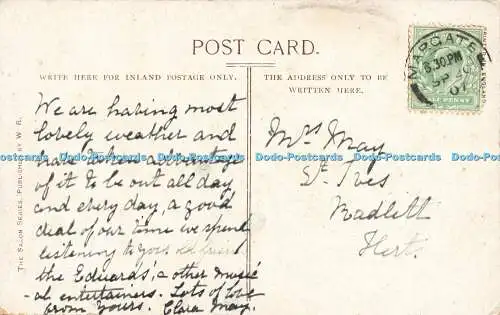 POST CARD.
WRITE HERE FOR INLAND POSTAGE ONLY.
THE ADDRESS ONLY TO BE
WRITTEN HERE.
MARGATE
8.30 PM
SP
07
HALF PENNY
THE SALON SERIES. PUBLISHED BY W. R.
We are having most
lovely weather and
have taken advantage
of it to be out all day
and every day, a good
deal of our time we spend
listening to your old friend
the Edwards', & other music
-al entertainers. Lots of love
from Yours. Clara May.
Mrs May
St. Ives
Radlett
Hert.
Dodo-Postcards Dodo-Postcards Dodo-Postcards Dodo-Postcards Dodo-Postcards